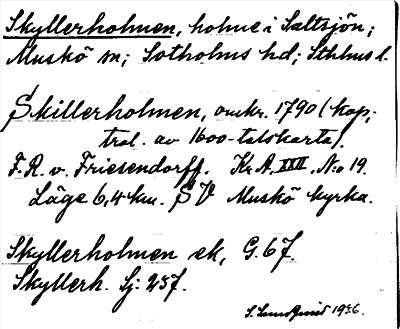 Skyllerholmen, holme i Saltsjön;
Muskö sn; Sotholms hd; Sthlms l.
Skillerholmen, omkr. 1790 (kop;
tral. av 1600-talskarta).
F. R. v. Friesendorff. Kr. A. XXII. No 19.
Läge 6,4 km. SV Muskö kyrka.
Skyllerholmen ek, G. 67
Skyllerh. Sj: 257.
S. Lundquist 1936.